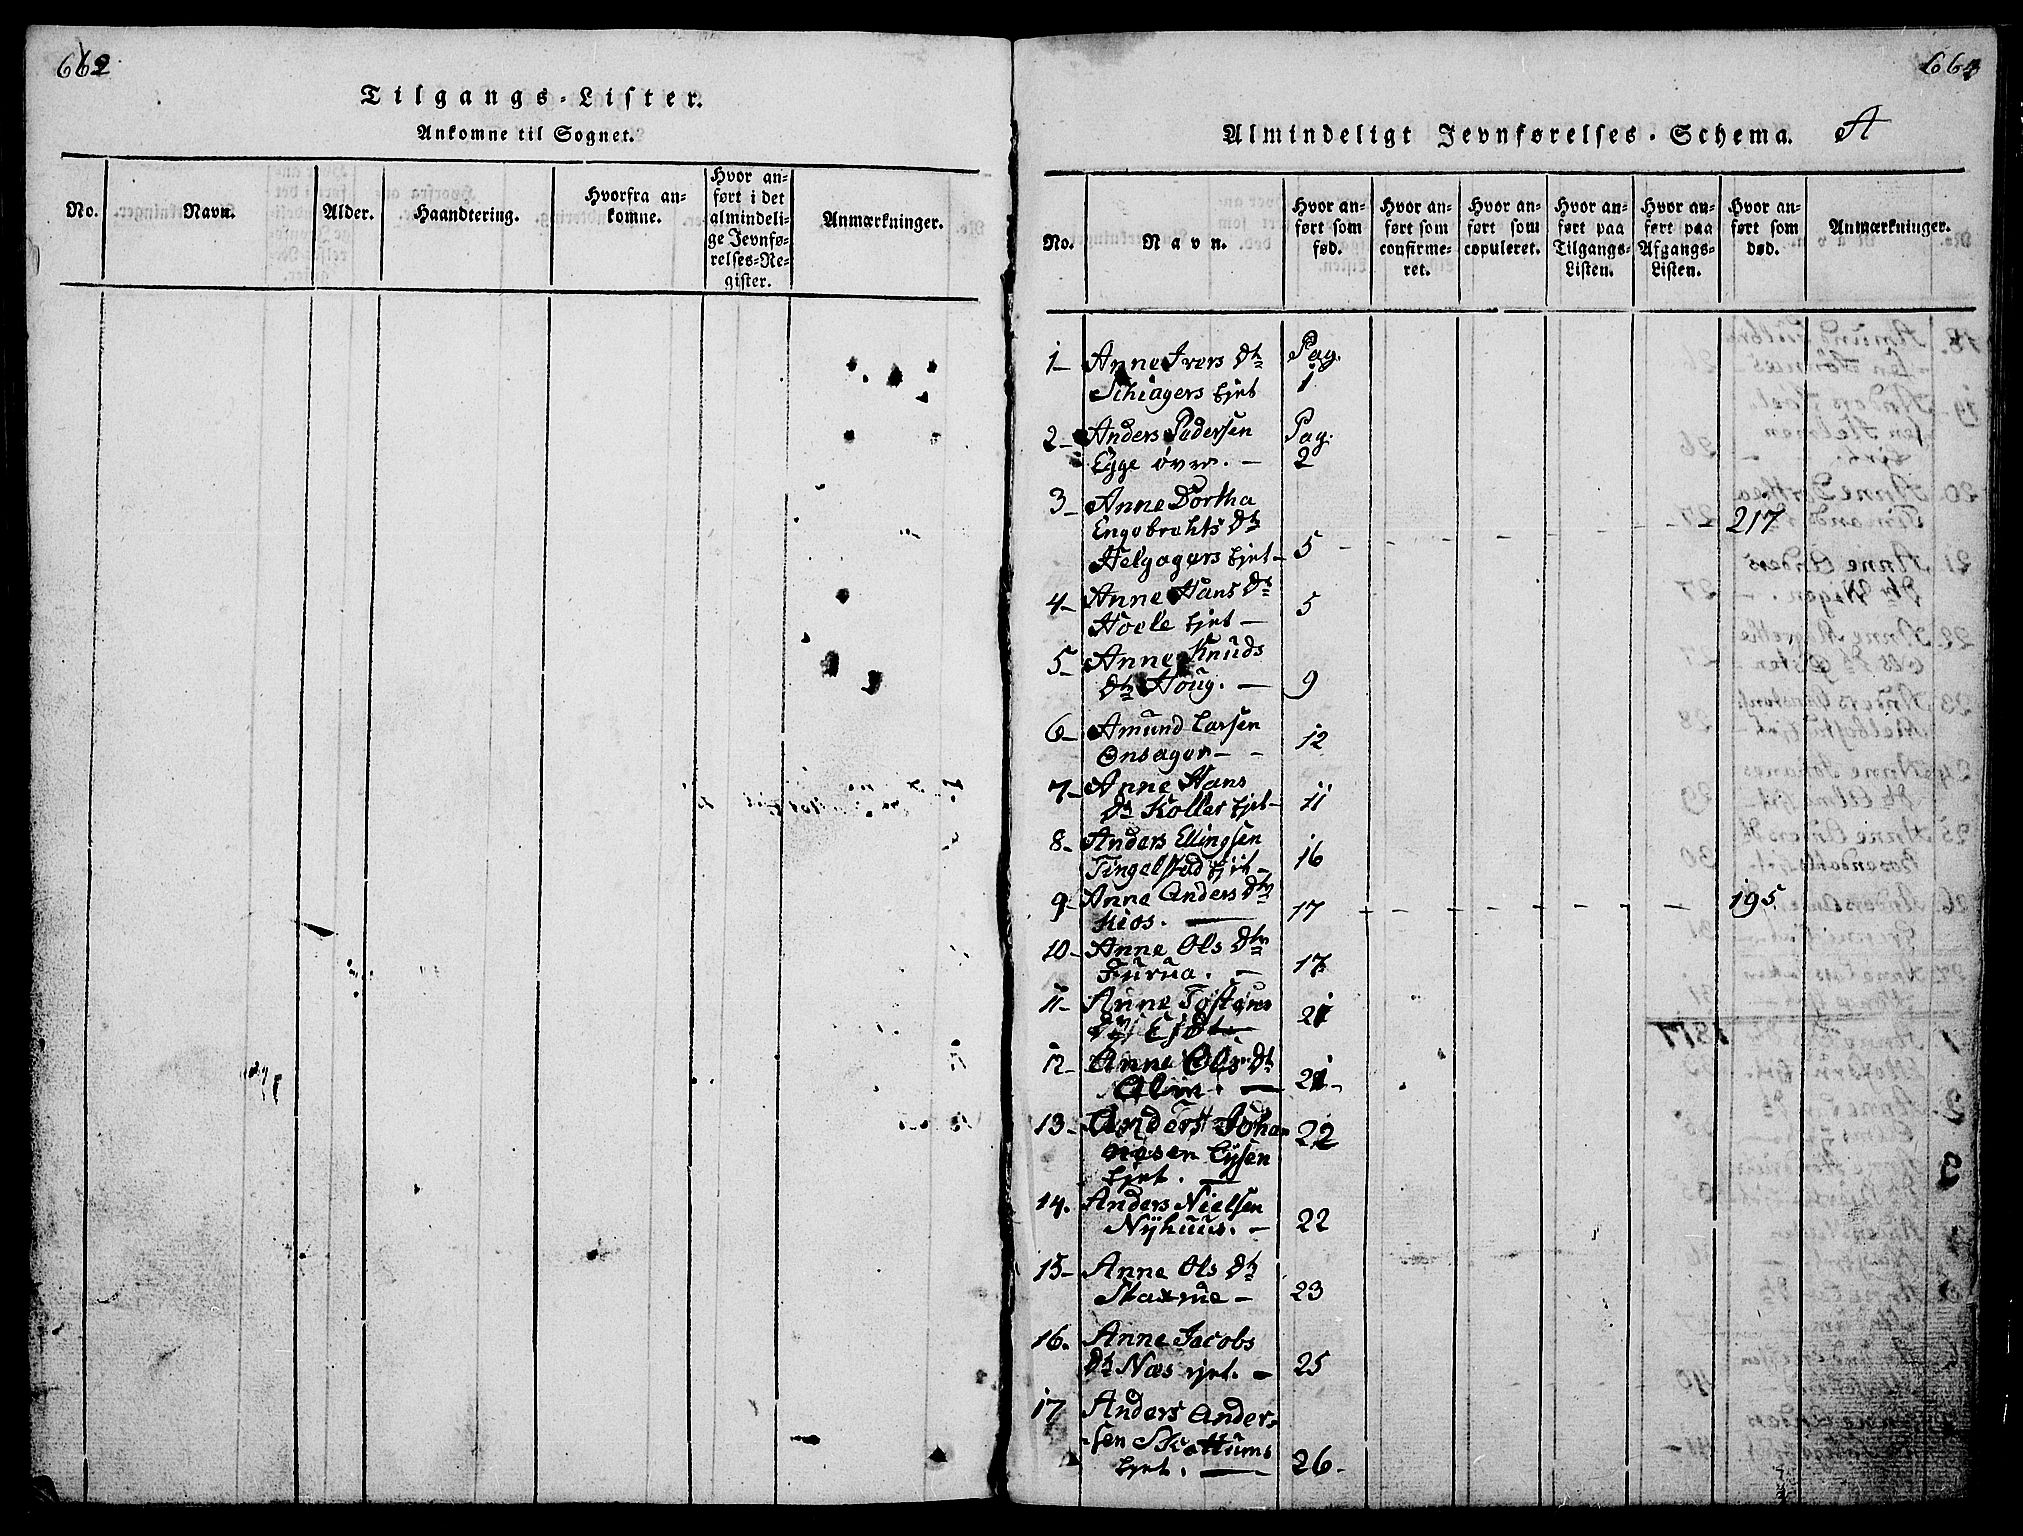 662
Tilgangs-Lister.
Ankomne til Sognet.
No.
Navn.
Alder.
Haandtering.
Hvorfra an-
komne.
Hvor an-
ført i det
almindeli-
ge Jevnfø-
relses-Re-
gister.
Anmærkninger.
663
Almindeligt Jevnførelses-Schema. A
No.
Navn.
Hvor an-
ført som
fød.
Hvor an-
ført som
confirme-
ret.
Hvor an-
ført som
copuleret.
Hvor an-
ført paa
Tilgangs-
Listen.
Hvor an-
ført paa
Afgangs-
Listen.
Hvor an-
ført som
død.
Anmærkninger.
1- Anne Ivers Dtr Pag.
Schiagers Ejet 1
2- Anders Pedersen Pag.
Egge øvre. - 2
3- Anne Dortha
Engebrehts Dtr 217
Helgagers Ejet- 5
4- Anne Hans Dtr 5
Hoele Ejet -
5- Anne Knuds
Dtr Houg. - 9
6- Amund Larsen
Onsager - - 12
7- Anne Hans
Dtr Koller Ejet- 11
8- Anders Ellingsen
Tingelstad Ejet - 16
9- Anne Anders Dtr 195
Kios. - 17
10- Anne Ols Dtr
Furua. - 17
11- Anne Tostens 21
12- Anne Ols Dtr
Alm. - 21-
13- Anders Joha- 22
nesen Lysen
Ejet. -
14. Anders Nielsen
Nÿhuus. - 22
15- Anne Ols Dtr
Staxrue - 23
16. Anne Jacobs
Dtr Næs Ejet. - 25
17 Anders Ander-
-sen Skattums
Ejet. - 26-